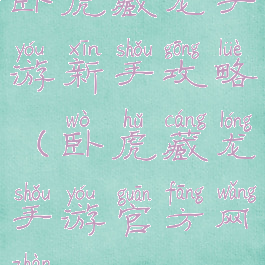 卧虎藏龙手
yóu xīn shǒu gōng lüè
游新手攻略
wò hǔ cáng lóng
（卧虎藏龙
shǒu yóu guān fāng wǎng
手游官方网